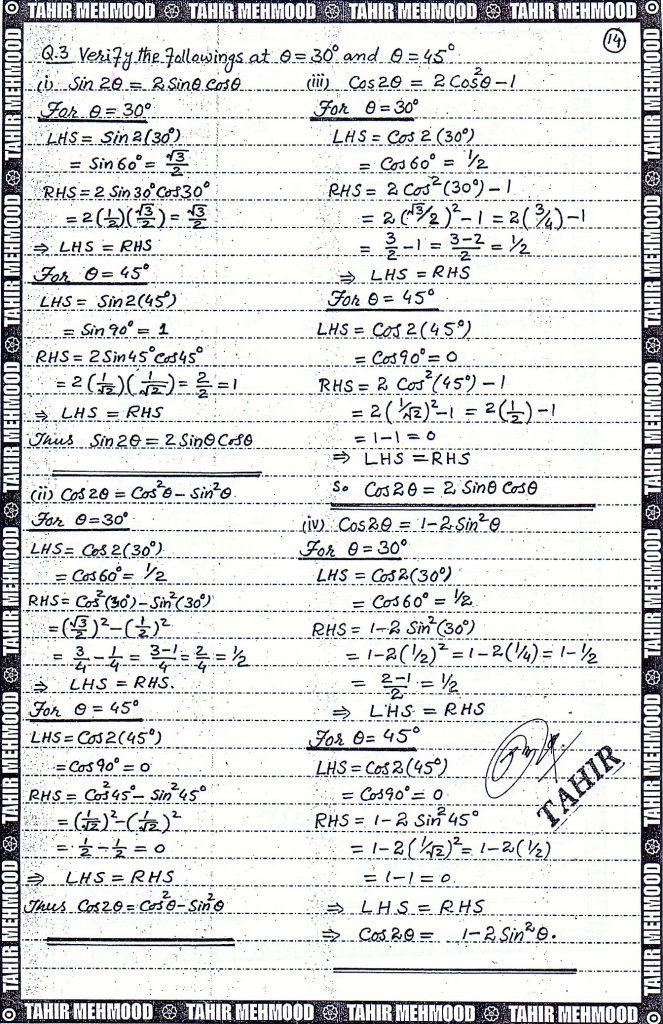 TAHIR MEHMOOD TAHIR MEHMOOD TAHIR MEHMOOD TAHIR MEHMOOD
14
Q.3 Verify the followings at θ=30° and θ=45°
(i) Sin 2θ = 2 Sinθ Cosθ
For θ = 30°
LHS = Sin 2(30°)
= Sin 60° = √3/2
RHS = 2 Sin 30° Cos 30°
= 2(1/2)(√3/2) = √3/2
⇒ LHS = RHS
For θ = 45°
LHS = Sin 2(45°)
= Sin 90° = 1
RHS = 2 Sin 45° Cos 45°
= 2(1/√2)(1/√2) = 2/2 = 1
⇒ LHS = RHS
Thus Sin 2θ = 2 Sinθ Cosθ
(ii) Cos 2θ = Cos²θ - Sin²θ
For θ=30°
LHS = Cos 2(30°)
= Cos 60° = 1/2
RHS = Cos²(30°) - Sin²(30°)
= (√3/2)² - (1/2)²
= 3/4 - 1/4 = 3-1/4 = 2/4 = 1/2
⇒ LHS = RHS.
For θ = 45°
LHS = Cos 2(45°)
= Cos 90° = 0
RHS = Cos²45° - Sin²45°
= (1/√2)² - (1/√2)²
= 1/2 - 1/2 = 0
⇒ LHS = RHS
Thus Cos 2θ = Cos²θ - Sin²θ
(iii) Cos 2θ = 2 Cos²θ - 1
For θ=30°
LHS = Cos 2(30°)
= Cos 60° = 1/2
RHS = 2 Cos²(30°) - 1
= 2(√3/2)² - 1 = 2(3/4) - 1
= 3/2 - 1 = 3-2/2 = 1/2
⇒ LHS = RHS
For θ = 45°
LHS = Cos 2(45°)
= Cos 90° = 0
RHS = 2 Cos²(45°) - 1
= 2(1/√2)² - 1 = 2(1/2) - 1
= 1-1 = 0
⇒ LHS = RHS
So Cos 2θ = 2 Sinθ Cosθ
(iv) Cos 2θ = 1-2 Sin²θ
For θ = 30°
LHS = Cos 2(30°)
= Cos 60° = 1/2
RHS = 1-2 Sin²(30°)
= 1-2(1/2)² = 1-2(1/4) = 1-1/2
= 2-1/2 = 1/2
⇒ LHS = RHS
For θ = 45°
LHS = Cos 2(45°)
= Cos 90° = 0
RHS = 1-2 Sin²45°
= 1-2(1/√2)² = 1-2(1/2)
= 1-1 = 0
⇒ LHS = RHS
⇒ Cos 2θ = 1-2 Sin²θ.
TAHIR
TAHIR MEHMOOD TAHIR MEHMOOD TAHIR MEHMOOD TAHIR MEHMOOD TAHIR MEHMOOD TAHIR MEHMOOD
TAHIR MEHMOOD TAHIR MEHMOOD TAHIR MEHMOOD TAHIR MEHMOOD TAHIR MEHMOOD TAHIR MEHMOOD
TAHIR MEHMOOD TAHIR MEHMOOD TAHIR MEHMOOD TAHIR MEHMOOD